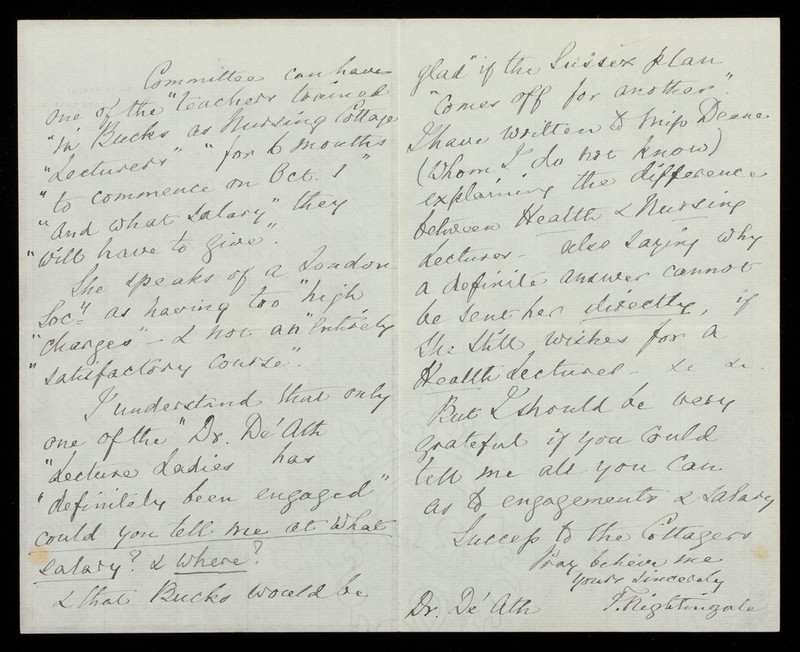 Committee can have
one of the "Teachers trained
"in Bucks as Nursing Cottage
"Lecturers" "for 6 months
"to commence on Oct. 1"
"and what salary" they
"will have to give".
She speaks of a London
Socy. as having too "high
"charges" - & not an "entirely
"satisfactory course".
I understand that only
one of the "Dr. De'Ath
"Lecture Ladies has
"definitely been engaged"
could you tell me at what
salary? & where?
& that Bucks would be
glad" if the Sussex plan
"comes off for another".
I have written to Miss Deane
(whom I do not know)
explaining the difference
between Health & Nursing
Lectures - also saying why
a definite answer cannot
be sent her directly, if
she still wishes for a
Health Lecturer - &c &c -
But I should be very
grateful if you could
tell me all you can
as to engagements & salary
Success to the Cottagers
Pray believe me
yours sincerely
F. Nightingale
Dr. De'Ath